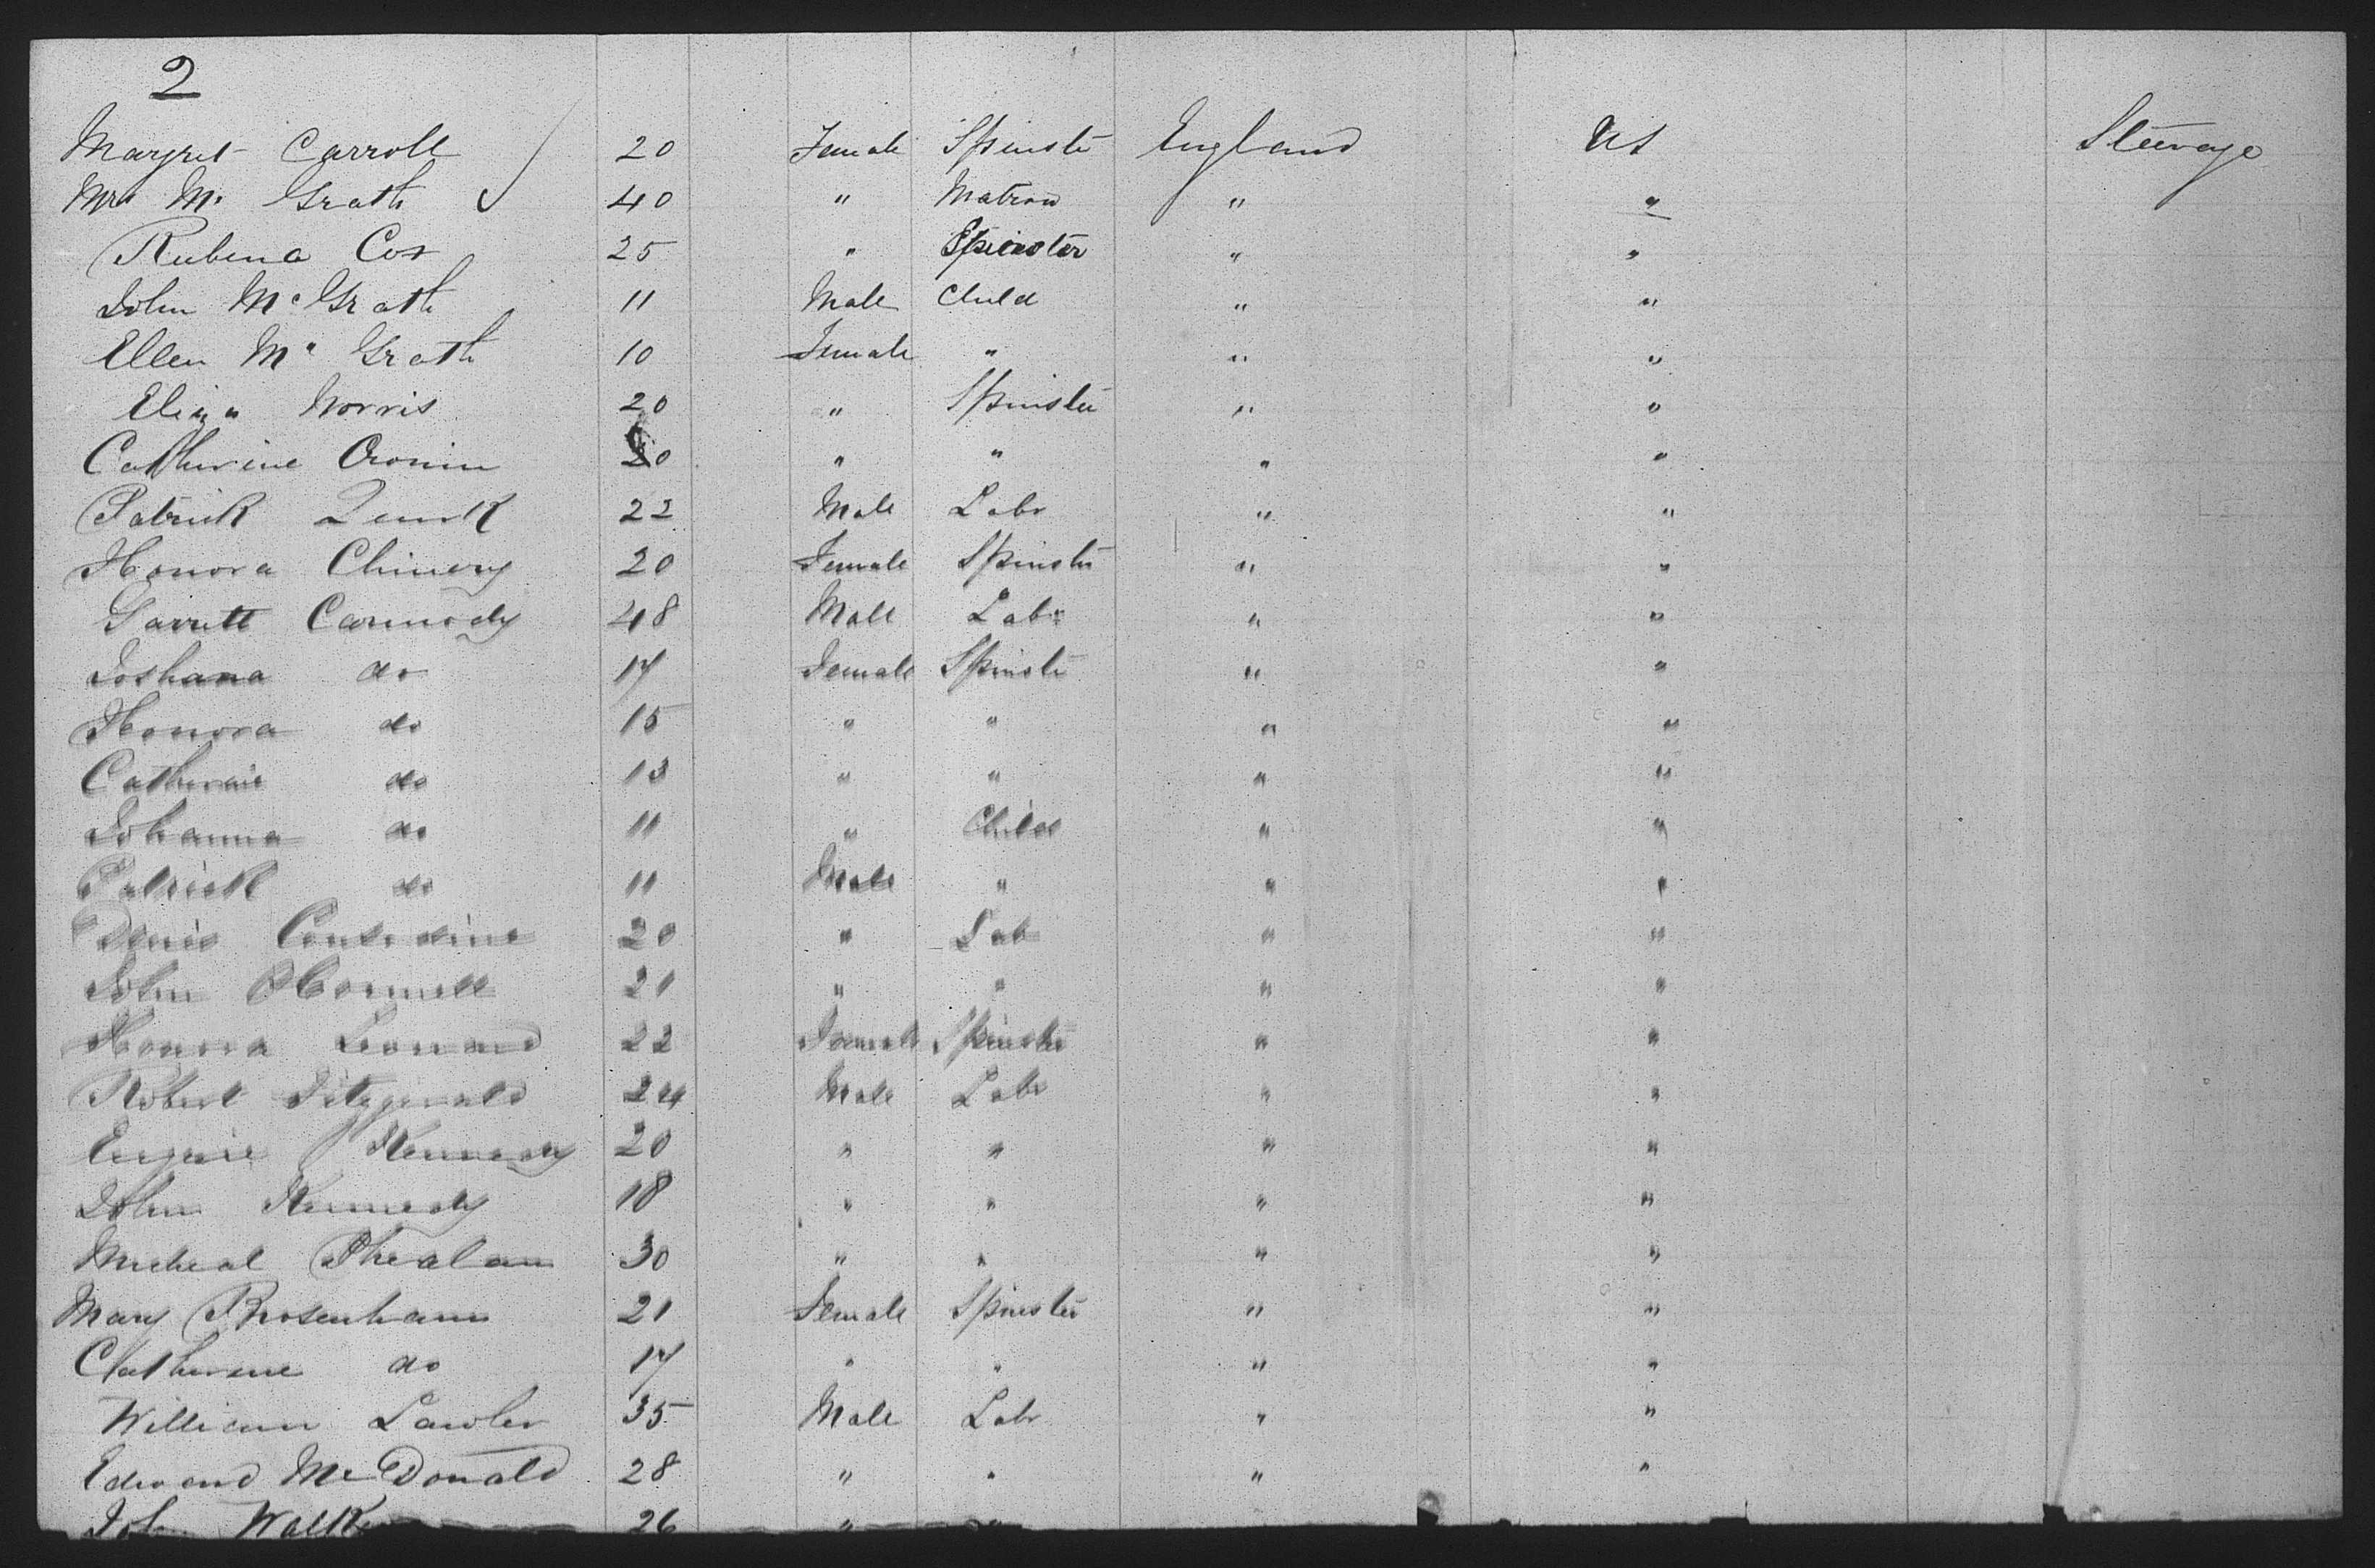 2
Margret Carroll 20 Female Spinster England US Steerage
Mrs Mc Grath 40 " Matron " "
Rubena Cox 25 " Spinster " "
John Mc Grath 11 Male Child " "
Ellen Mc Grath 10 Female " " "
Eliza Norris 20 " Spinster " "
Catherine Cronin 20 " " " "
Patrick Quirk 22 Male Labr " "
Honora Chinery 20 Female Spinster " "
Garrett Carmody 48 Male Labr " "
Joshana do 17 Female Spinster " "
Honora do 15 " " " "
Catherine do 13 " " " "
Johanna do 11 " Child " "
Patrick do 11 Male " " "
Denis Considine 20 " Lab " "
John O Connell 21 " " " "
Honora Leonard 22 Female Spinster " "
Robert Fitzgerald 24 Male Labr " "
Kennedy 20 " " " "
John Kennedy 18 " " " "
Micheal Phealan 30 " " " "
Mary Brosenham 21 Female Spinster " "
Catherine do 17 " " " "
William Lawler 35 Male Labr " "
Edward McDonald 28 " " " "
John Walker 26 " "